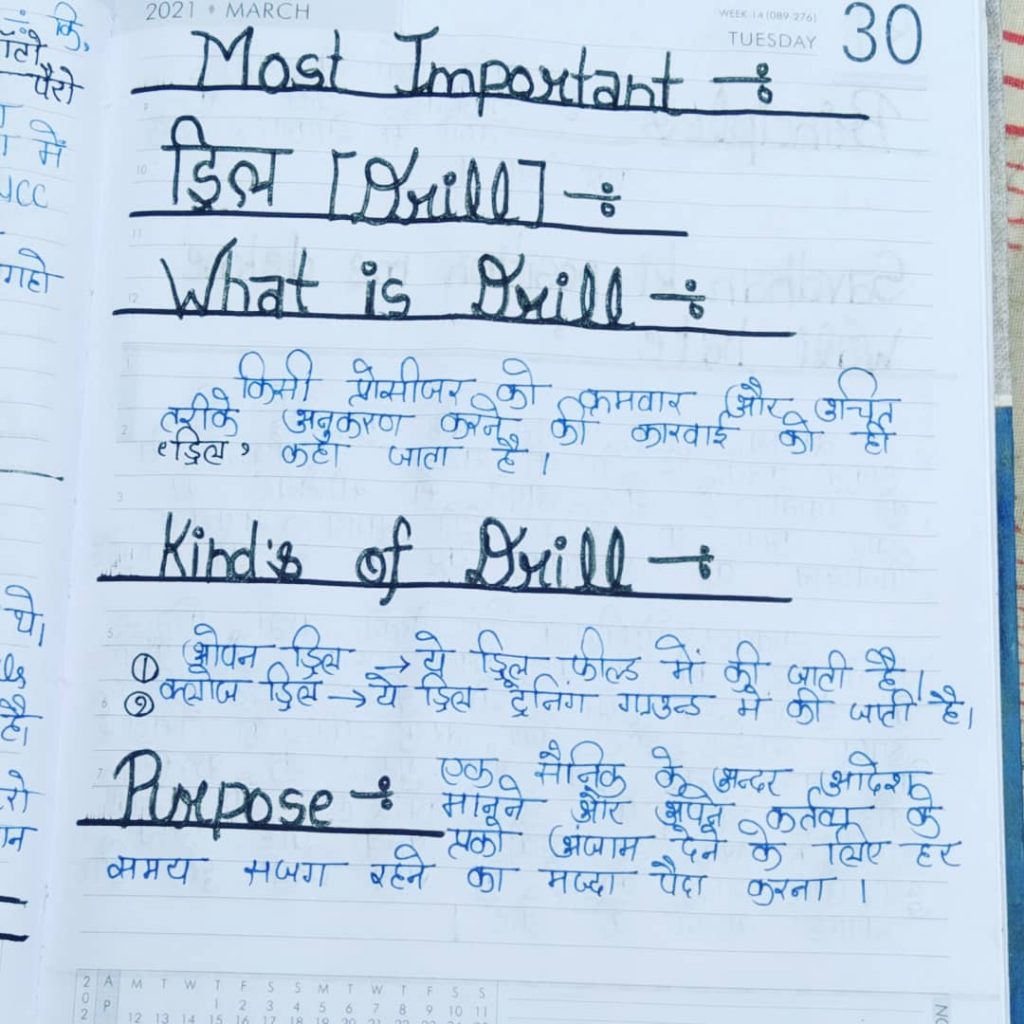 कि,
पैरो
में
NCC
थे।
है।
2021 • MARCH
WEEK 14 (089-276)
TUESDAY
30
Most Important ÷
ड्रिल [Drill] ÷
What is Drill ÷
किसी प्रोसीजर को क्रमवार और उचित
तरीके अनुकरण करने की कारवाई को ही
"ड्रिल" कहा जाता है।
Kind's of Drill ÷
① ओपन ड्रिल → ये ड्रिल फील्ड में की जाती है।
② क्लोज ड्रिल → ये ड्रिल ट्रेनिंग ग्राउन्ड में की जाती है।
Purpose ÷ एक सैनिक के अन्दर आदेश
मानने और अपने कर्तव्य के
अंजाम देने के लिए हर
समय सजग रहने का मज्दा पैदा करना।
2021 A P M T W T F S S M T W T F S S
1 2 3 4 5 6 7 8 9 10 11
12 13 14 15 16